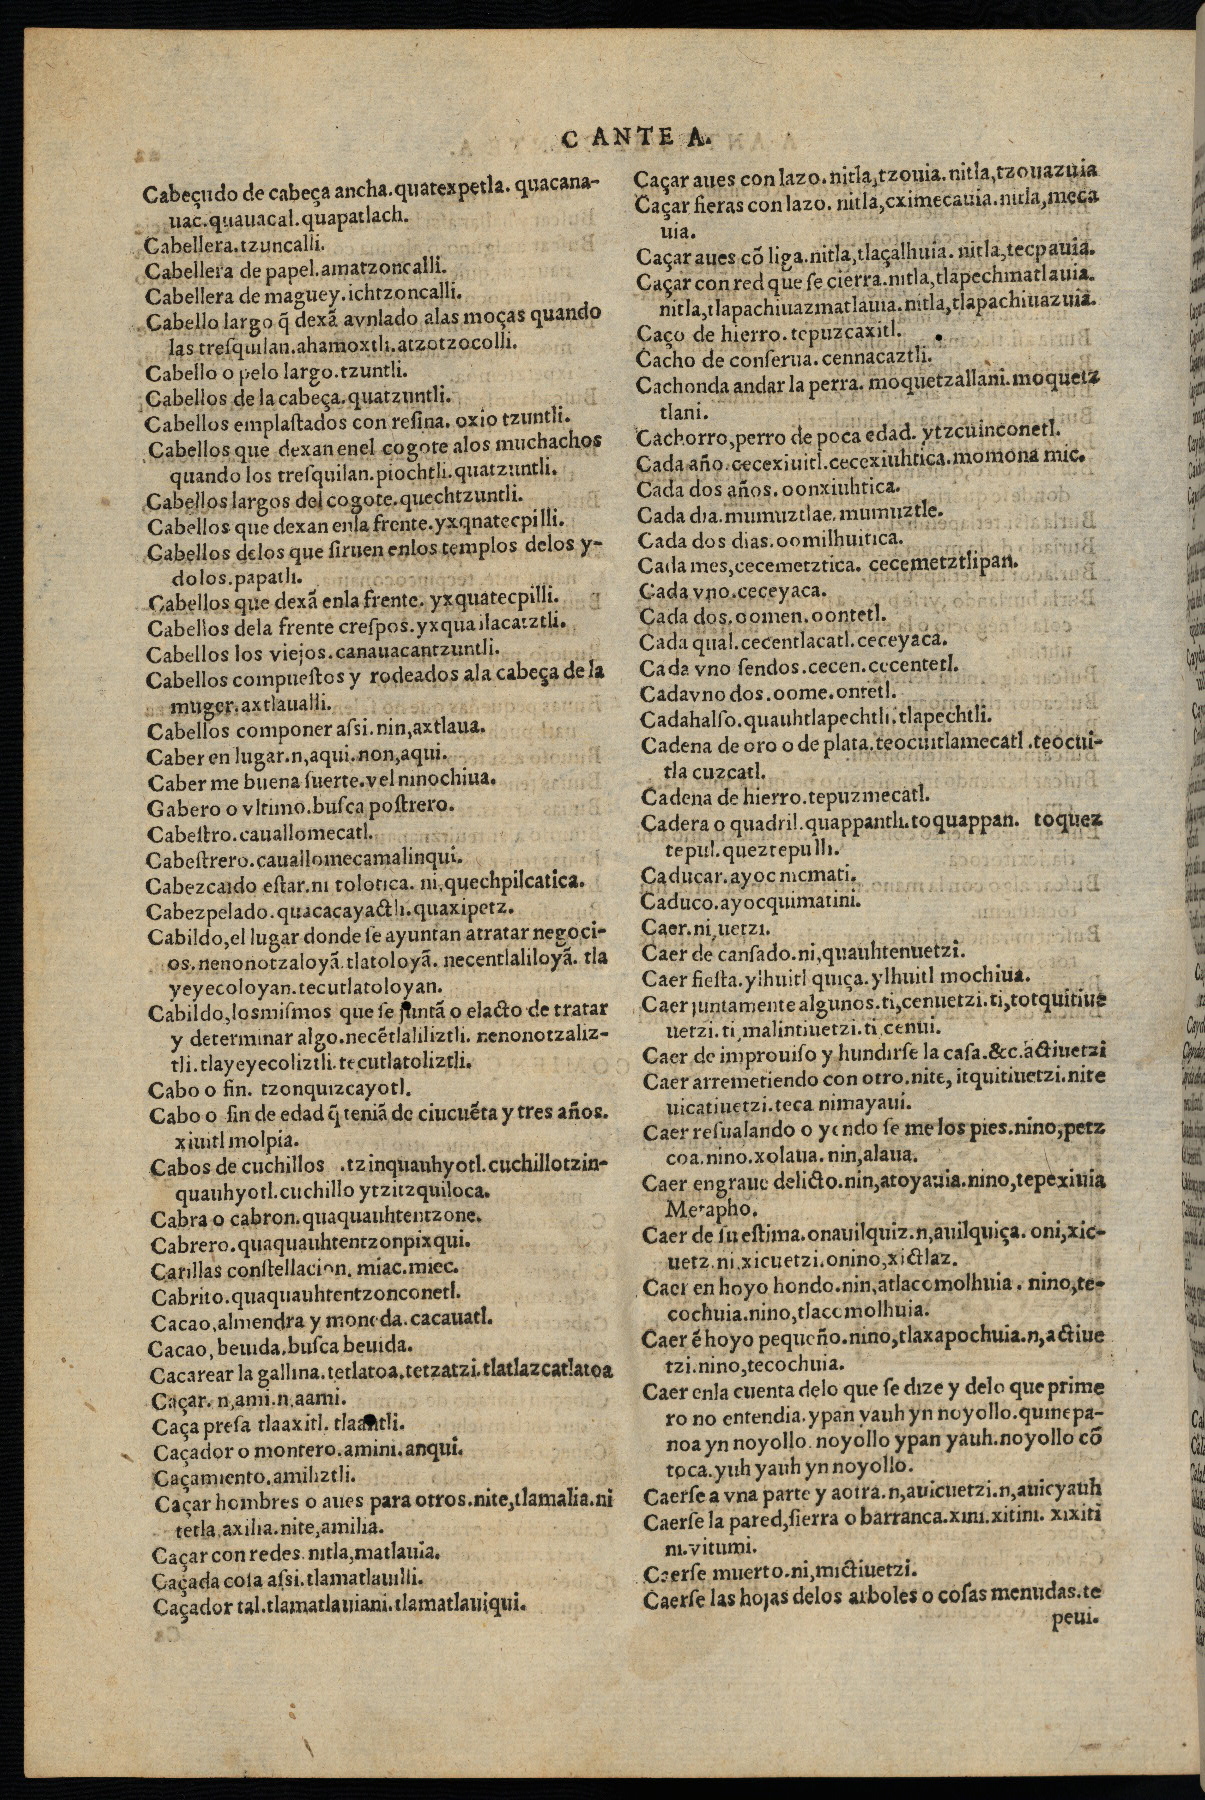 C ANTE A.
Cabeçudo de cabeça ancha.quatexpetla. quacana-
uac.quauacal.quapatlach.
Cabellera.tzuncalli.
Cabellera de papel.amatzoncalli.
Cabellera de maguey.ichtzoncalli.
Cabello largo q̃ dexã avnlado alas moças quando
las treſquilan.ahamoxtli.atzotzocolli.
Cabello o pelo largo.tzuntli.
Cabellos de la cabeça.quatzuntli.
Cabellos emplaſtados con reſina. oxio tzuntli.
Cabellos que dexan enel cogote alos muchachos
quando los treſquilan.piochtli.quatzuntli.
Cabellos largos del cogote.quechtzuntli.
Cabellos que dexan enla frente.yxqnatecpilli.
Cabellos delos que ſiruen enlos templos delos y-
dolos.papatli.
Cabellos que dexã enla frente. yxquatecpilli.
Cabellos dela frente creſpos.yxquailacatztli.
Cabellos los viejos.canauacantzuntli.
Cabellos compueſtos y rodeados ala cabeça de la
muger.axtlaualli.
Cabellos componer aſsi.nin,axtlaua.
Caber en lugar.n,aqui.non,aqui.
Caber me buena ſuerte.vel ninochiua.
Gabero o vltimo.buſca poſtrero.
Cabeſtro.cauallomecatl.
Cabeſtrero.cauallomecamalinqui.
Cabezcaido eſtar.ni tolotica. ni,quechpilcatica.
Cabezpelado.quacacayactli.quaxipetz.
Cabildo,el lugar donde ſe ayuntan atratar negoci-
os.nenonotzaloyã.tlatoloyã. necentlaliloyã. tla
yeyecoloyan.tecutlatoloyan.
Cabildo,losmiſmos que ſe juntã o elacto de tratar
y determinar algo.necẽtlaliliztli. nenonotzaliz-
tli.tlayeyecoliztli.tecutlatoliztli.
Cabo o fin. tzonquizcayotl.
Cabo o fin de edad q̃ teniã de ciucuẽta y tres años.
xiuitl molpia.
Cabos de cuchillos .tzinquauhyotl.cuchillotzin-
quauhyotl.cuchillo ytzitzquiloca.
Cabra o cabron.quaquauhtentzone.
Cabrero.quaquauhtentzonpixqui.
Carillas conſtellacion. miac.miec.
Cabrito.quaquauhtentzonconetl.
Cacao,almendra y moneda.cacauatl.
Cacao,beuida.buſca beuida.
Cacarear la gallina.tetlatoa.tetzatzi.tlatlazcatlatoa
Caçar. n,ami.n,aami.
Caça preſa tlaaxitl. tlaantli.
Caçador o montero.amini.anqui.
Caçamiento.amiliztli.
Caçar hombres o aues para otros.nite,tlamalia.ni
tetla,axilia.nite,amilia.
Caçar con redes.nitla,matlauia.
Caçada coſa aſsi.tlamatlauilli.
Caçador tal.tlamatlauiani.tlamatlauiqui.
Caçar aues con lazo.nitla,tzouia.nitla,tzouazuia
Caçar fieras con lazo. nitla,cximecauia.nitla,meca
uia.
Caçar aues cõ liga.nitla,tlaçalhuia. nitla,tecpauia.
Caçar con red que ſe cierra.nitla,tlapechmatlauia.
nitla,tlapachiuazmatlauia.nitla,tlapachiuazuia.
Caço de hierro.tepuzcaxitl.
Cacho de conſerua. cennacaztli.
Cachonda andar la perra. moquetzallani.moquetz
tlani.
Cachorro,perro de poca edad. ytzcuinconetl.
Cada año.cecexiuitl.cecexiuhtica.momona mic.
Cada dos años. oonxiuhtica.
Cada dia.mumuztlae.mumuztle.
Cada dos dias.oomilhuitica.
Cada mes,cecemetztica. cecemetztlipan.
Cada vno.ceceyaca.
Cada dos.oomen.oontetl.
Cada qual.cecentlacatl.ceceyaca.
Cada vno ſendos.cecen.cecentetl.
Cadavno dos.oome.ontetl.
Cadahalſo.quauhtlapechtli.tlapechtli.
Cadena de oro o de plata.teocuitlamecatl .teocui-
tla cuzcatl.
Cadena de hierro.tepuzmecatl.
Cadera o quadril.quappantli.toquappan. toquez
tepul.queztepulli.
Caducar.ayoc nicmati.
Caduco.ayocquimatini.
Caer.ni,uetzi.
Caer de canſado.ni,quauhtenuetzi.
Caer fieſta.ylhuitl quiça.ylhuitl mochiua.
Caer juntamente algunos.ti,cenuetzi.ti,totquitiue
uetzi.ti,malintiuetzi.ti,cenui.
Caer de improuiſo y hundirſe la caſa.&c.actiuetzi
Caer arremetiendo con otro.nite, itquitiuetzi.nite
uicatiuetzi.teca nimayaui.
Caer reſualando o yendo ſe me los pies.nino,petz
coa.nino.xolaua.nin,alaua.
Caer engraue delicto.nin,atoyauia.nino,tepexiuia
Metapho.
Caer de ſu eſtima.onauilquiz.n,auilquiça. oni,xic-
uetz.ni,xicuetzi.onino,xictlaz.
Caer en hoyo hondo.nin,atlacomolhuia. nino,te-
cochuia.nino,tlacomolhuia.
Caer ẽ hoyo pequeño.nino,tlaxapochuia.n,actiue
tzi.nino,tecochuia.
Caer enla cuenta delo que ſe dize y delo que prime
ro no entendia.ypan yauh yn noyollo.quinepa-
noa yn noyollo.noyollo ypan yauh.noyollo cõ
toca.yuh yauh yn noyollo.
Caerſe a vna parte y aotra.n,auicuetzi.n,auicyauh
Caerſe la pared,ſierra o barranca.xini.xitini. xixiti
ni.vitumi.
Caerſe muerto.ni,mictiuetzi.
Caerſe las hojas delos arboles o coſas menudas.te
peui.